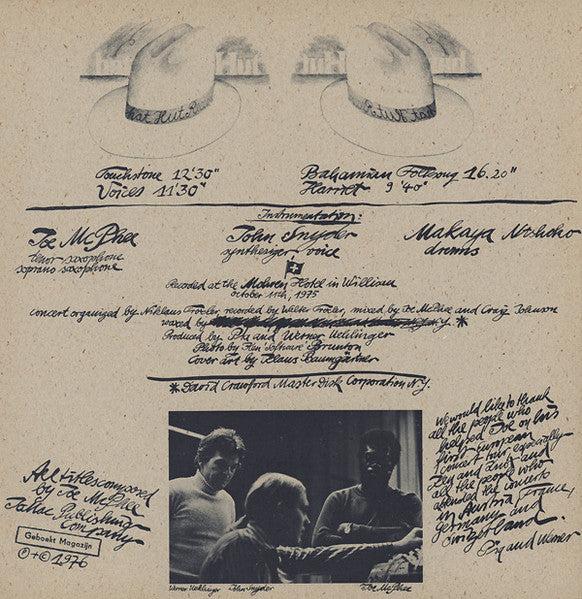 hat Hut Re
Touchstone 12'30"
Voices 11'30"
Bahamian Folksong 16.20"
Harriet 9'40"
Instrumentation:
Joe McPhee
tenor saxophone
soprano saxophone
John Snyder
synthesizer, voice
Makaya Ntshoko
drums
Recorded at the Mohren Hotel in Willisau
october 11th, 1975
concert organized by Niklaus Troxler, recorded by Walter Troxler, mixed by Joe McPhee and Craig Johnson
waxed by *
Produced by Pia and Werner Uehlinger
Photo by Ken Brunton
Cover art by Klaus Baumgärtner
*David Crawford Master Disk Corporation N.Y.
All titles composed
by Joe McPhee
Publishing
Company
Geboekt Magazijn
©+℗ 1976
We would like to thank
all the people who
helped Joe on his
third European
concert tour, especially
and and
all the people who
attended the concerts
in Austria, France,
Germany and
Switzerland
Pia and Werner
Werner Uehlinger John Snyder Joe McPhee